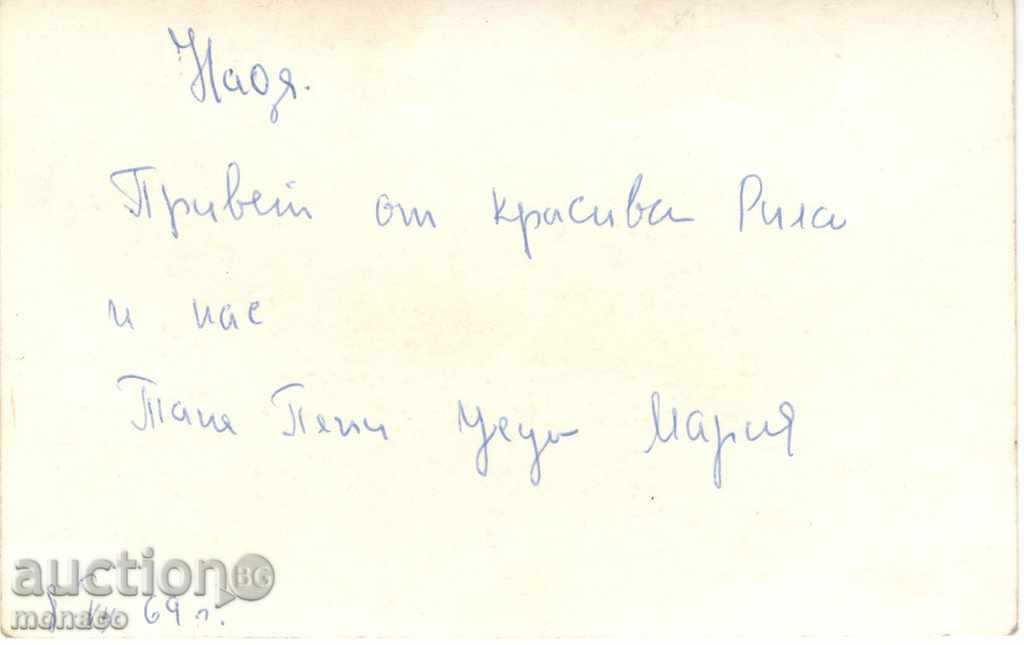 Надя.
Привет от красива Рила
и нас
Таня Пепи Цецо Мария
auction BG
monaco
69 г.